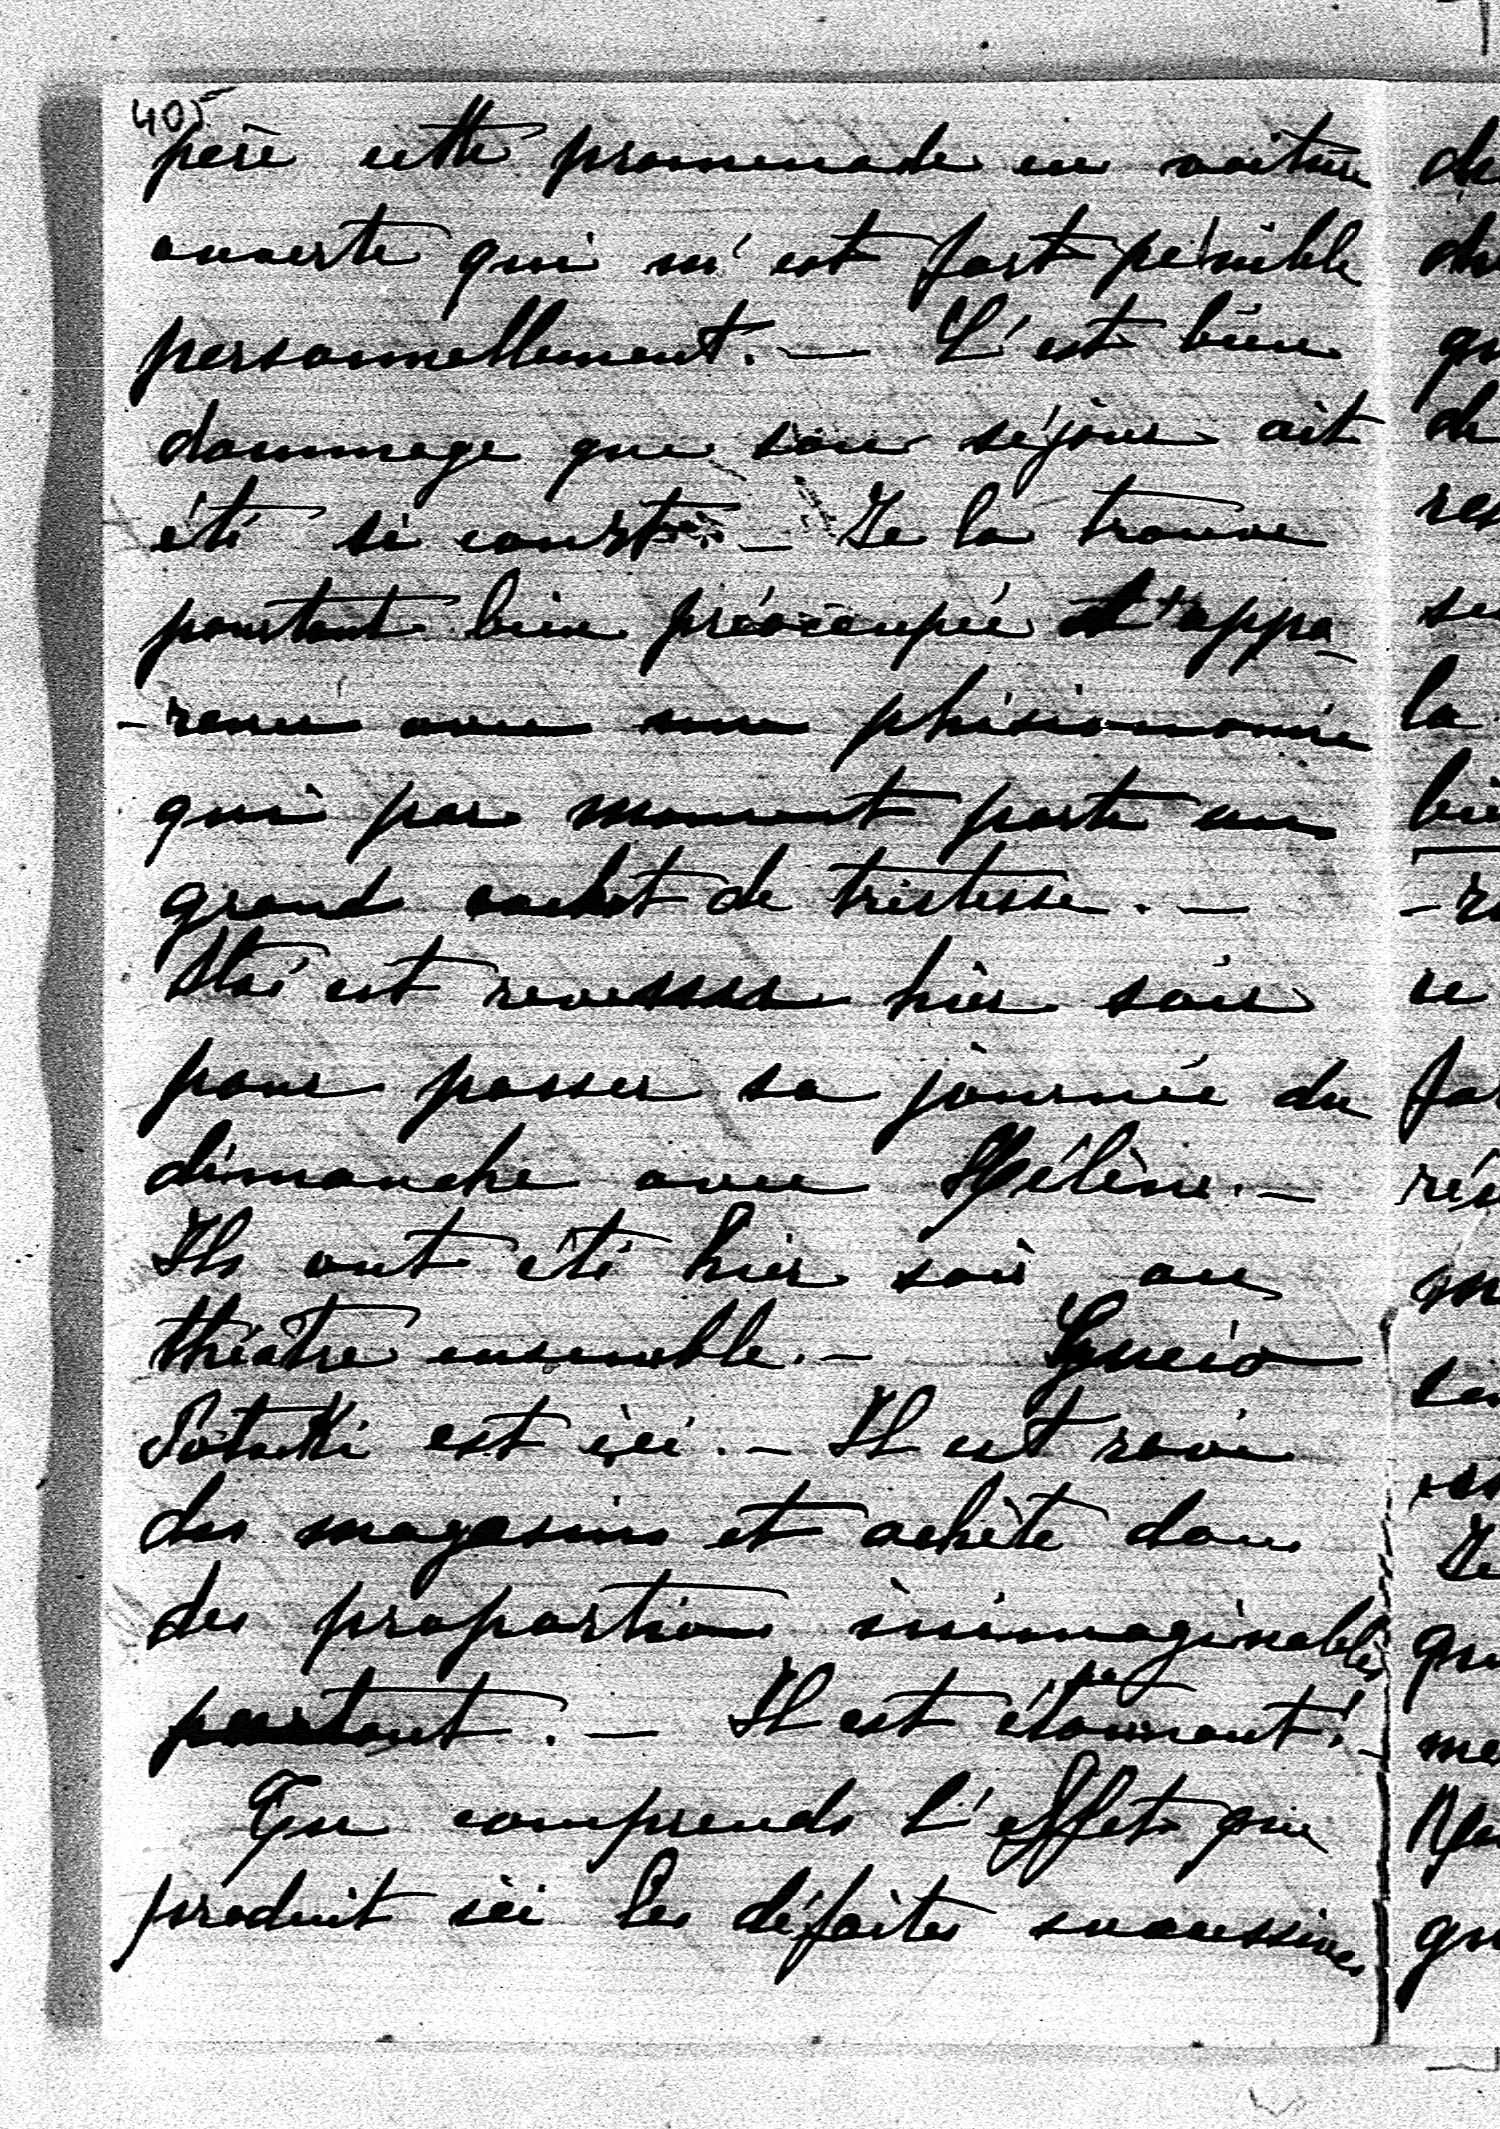 405
père cette promenade en voiture
ouverte qui m'est fort pénible
personnellement. — C'est bien
dommage que son séjour ait
été si court. — Je la trouve
pourtant bien préoccupée d'appa
-rence avec une phisionomie
qui par moment porte un
grand cachet de tristesse. —
est revenu hier soir
pour passer sa journée du
dimanche avec Hélène. —
Ils ont été hier soir au
théâtre ensemble. —
est ici. — Il est ravi
des magasins et achète dans
des proportions inimaginables
partout. — Il est étonnant! —
Tu comprends l'effet que
produit ici les défaites successives